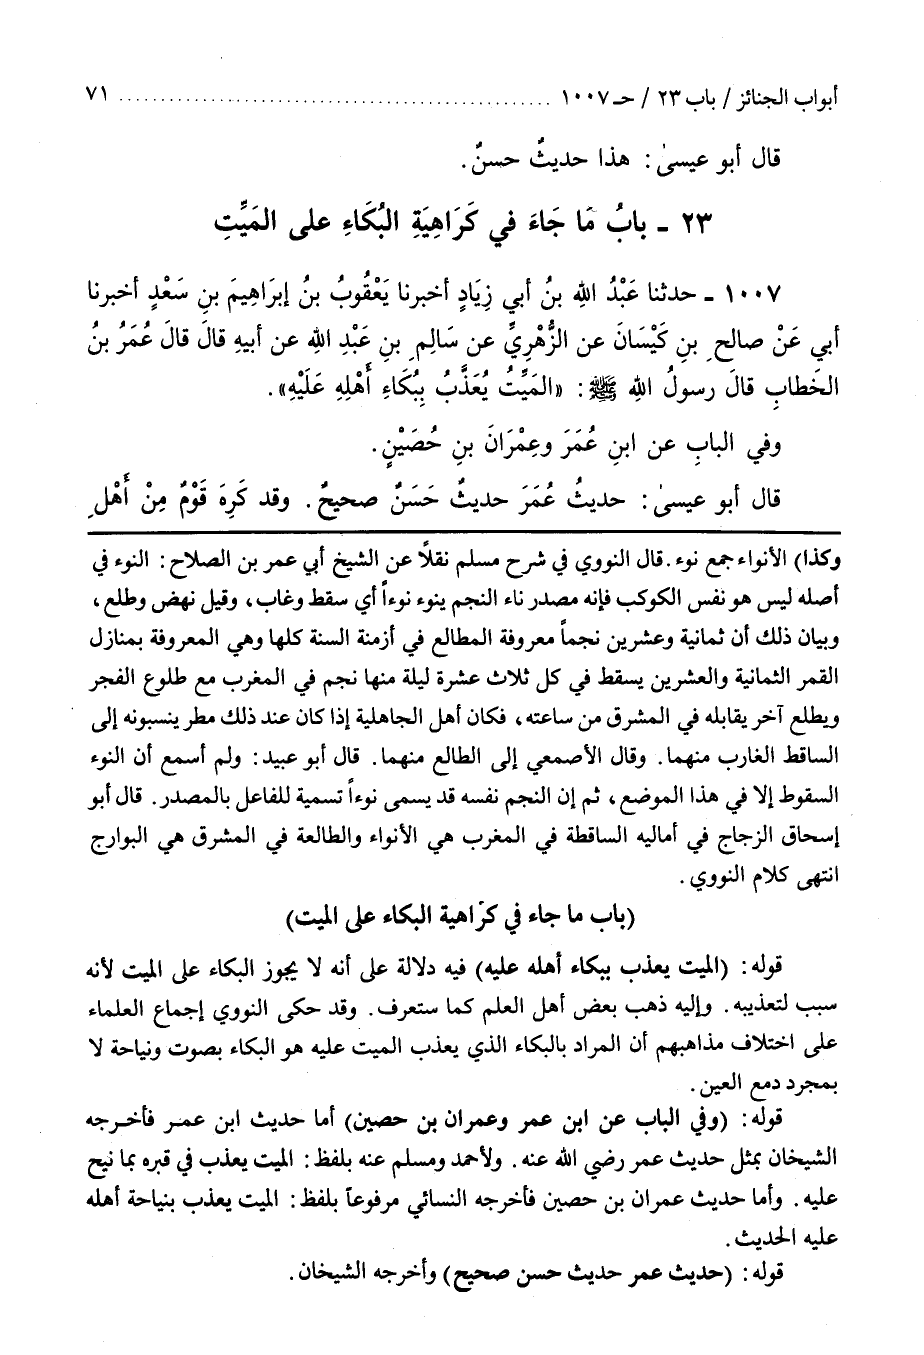 أبواب الجنائز / باب ٢٣ / حـ ١٠٠٧ ........................................................ ٧١
قال أبو عيسىٰ: هذا حديثٌ حسنٌ.
٢٣ - بابُ مَا جَاءَ في كَرَاهِيَةِ البُكَاءِ على المَيِّتِ
١٠٠٧ - حدثنا عَبْدُ اللهِ بنُ أبي زِيَادٍ أخبرنا يَعْقُوبُ بنُ إبرَاهِيمَ بنِ سَعْدٍ أخبرنا
أبي عَنْ صالحِ بنِ كَيْسَانَ عن الزُّهْرِيِّ عن سَالِمِ بنِ عَبْدِ اللهِ عن أبيهِ قالَ قالَ عُمَرُ بنُ
الخَطابِ قالَ رسولُ اللهِ ﷺ: «المَيِّتُ يُعَذَّبُ بِبُكَاءِ أَهْلِهِ عَلَيْهِ».
وفي البابِ عن ابنِ عُمَرَ وعِمْرَانَ بنِ حُصَيْنٍ.
قال أبو عيسىٰ: حديثُ عُمَرَ حديثٌ حَسَنٌ صحيحٌ. وقد كَرِهَ قَوْمٌ مِنْ أَهْلِ
وكذا) الأنواء جمع نوء. قال النووي في شرح مسلم نقلاً عن الشيخ أبي عمر بن الصلاح: النوء في
أصله ليس هو نفس الكوكب فإنه مصدر ناء النجم ينوء نوءاً أي سقط وغاب، وقيل نهض وطلع،
وبيان ذلك أن ثمانية وعشرين نجماً معروفة المطالع في أزمنة السنة كلها وهي المعروفة بمنازل
القمر الثمانية والعشرين يسقط في كل ثلاث عشرة ليلة منها نجم في المغرب مع طلوع الفجر
ويطلع آخر يقابله في المشرق من ساعته، فكان أهل الجاهلية إذا كان عند ذلك مطر ينسبونه إلى
الساقط الغارب منهما. وقال الأصمعي إلى الطالع منهما. قال أبو عبيد: ولم أسمع أن النوء
السقوط إلا في هذا الموضع، ثم إن النجم نفسه قد يسمى نوءاً تسمية للفاعل بالمصدر. قال أبو
إسحاق الزجاج في أماليه الساقطة في المغرب هي الأنواء والطالعة في المشرق هي البوارج
انتهى كلام النووي.
(باب ما جاء في كرَاهية البكاء على الميت)
قوله: (الميت يعذب ببكاء أهله عليه) فيه دلالة على أنه لا يجوز البكاء على الميت لأنه
سبب لتعذيبه. وإليه ذهب بعض أهل العلم كما ستعرف. وقد حكى النووي إجماع العلماء
على اختلاف مذاهبهم أن المراد بالبكاء الذي يعذب الميت عليه هو البكاء بصوت ونياحة لا
بمجرد دمع العين.
قوله: (وفي الباب عن ابن عمر وعمران بن حصين) أما حديث ابن عمر فأخرجه
الشيخان بمثل حديث عمر رضي الله عنه. ولأحمد ومسلم عنه بلفظ: الميت يعذب في قبره بما نيح
عليه. وأما حديث عمران بن حصين فأخرجه النسائي مرفوعاً بلفظ: الميت يعذب بنياحة أهله
عليه الحديث.
قوله: (حديث عمر حديث حسن صحيح) وأخرجه الشيخان.